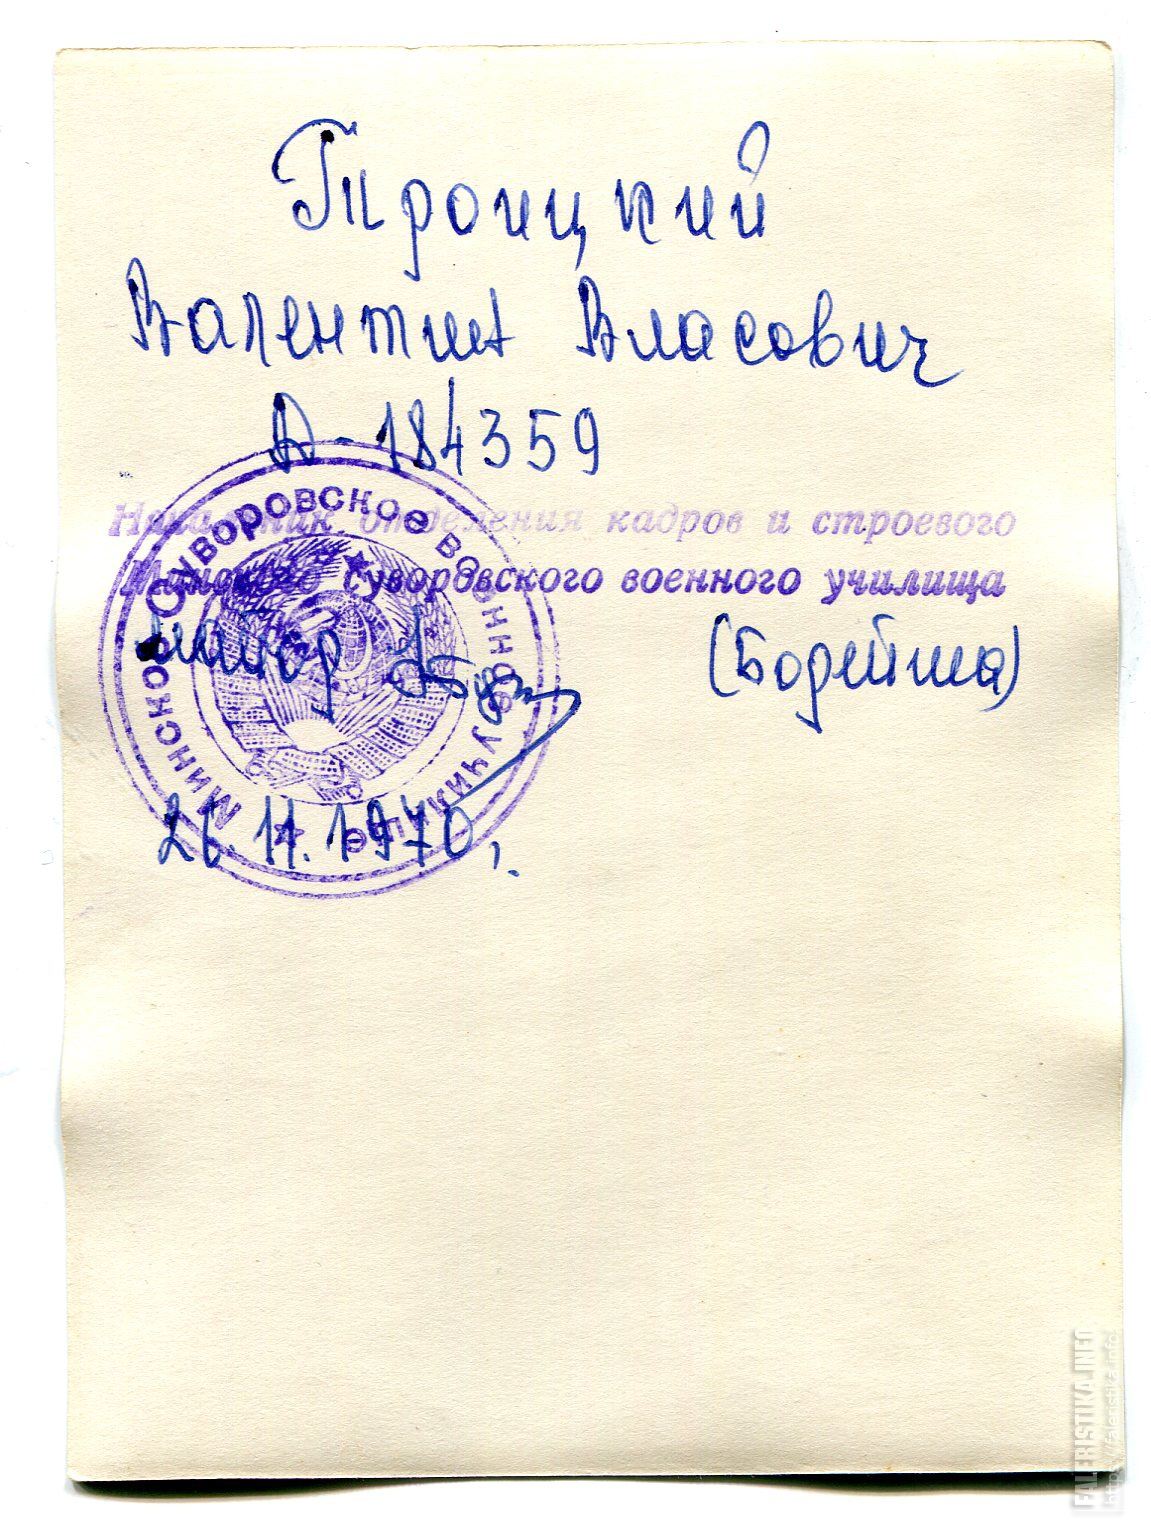 Троицкий
Валентин Власович
А-184359
Начальник отделения кадров и строевого
Минского суворовского военного училища
майор
(Бодейша)
26.11.1970г.
Минское Суворовское военное училище
FALERISTIKA.INFO
https://faleristika.info